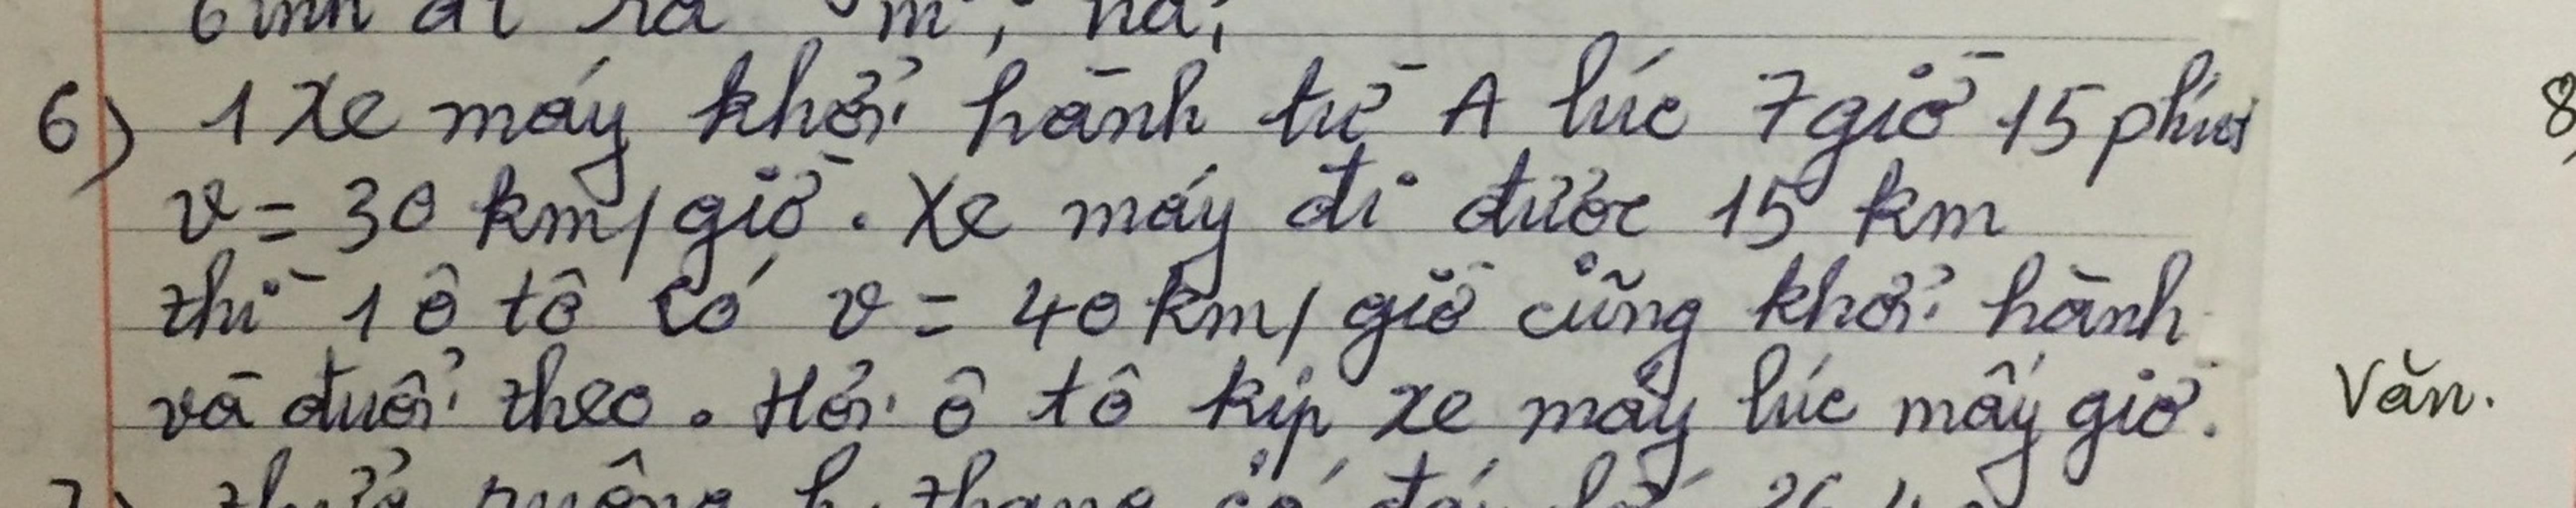 6) 1 xe máy khởi hành từ A lúc 7 giờ 15 phút
v = 30 km/giờ. Xe máy đi được 15 km
thì 1 ô tô có v = 40 km/giờ cũng khởi hành
và đuổi theo. Hỏi ô tô kịp xe máy lúc mấy giờ.
Văn.
8